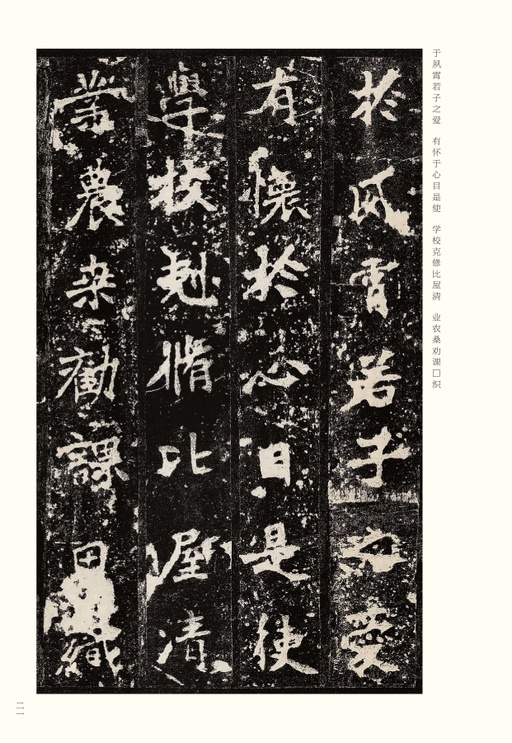 于夙霄若子之爱　有怀于心目是使　学校克修比屋清　业农桑劝课□织
於夙霄若子之愛
有懷於心目是使
學校尅脩比屋清
業農桒勸課田織
二一